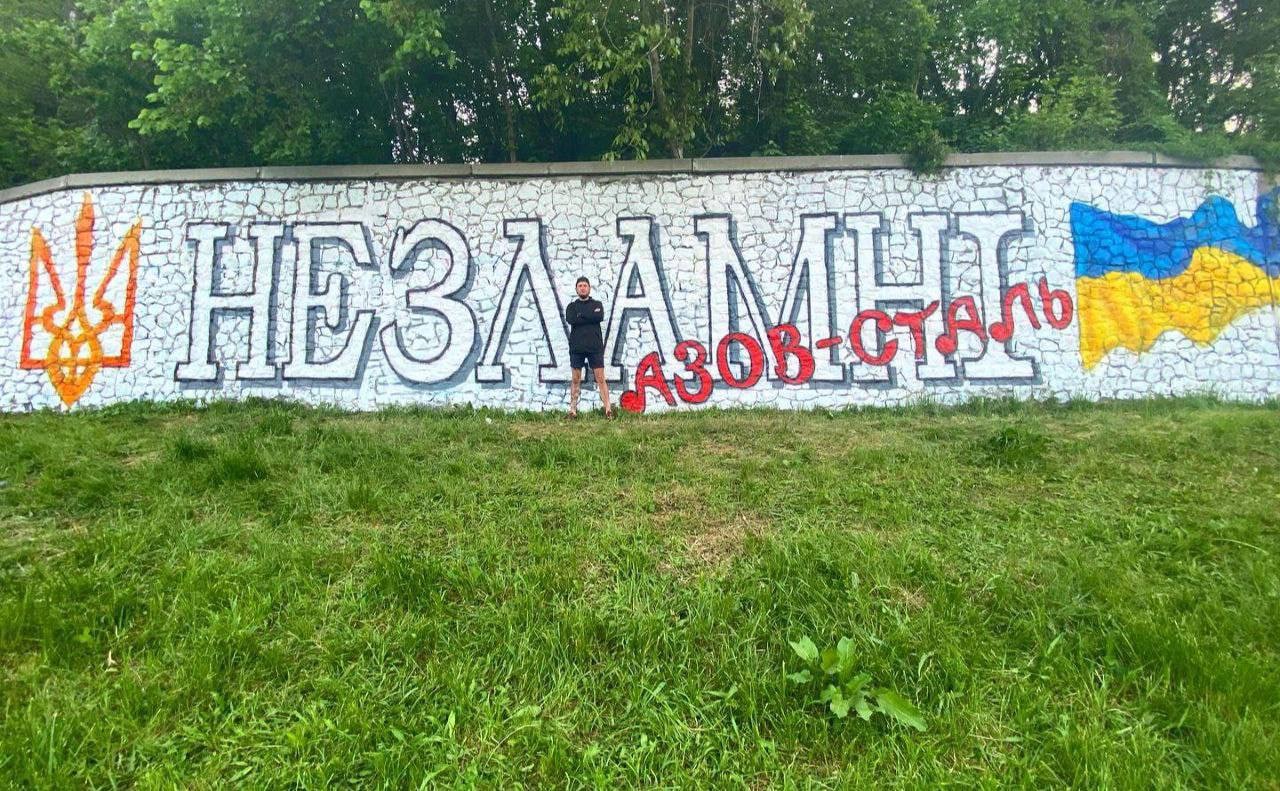 НЕЗЛАМНІ
АЗОВ-СТАЛЬ